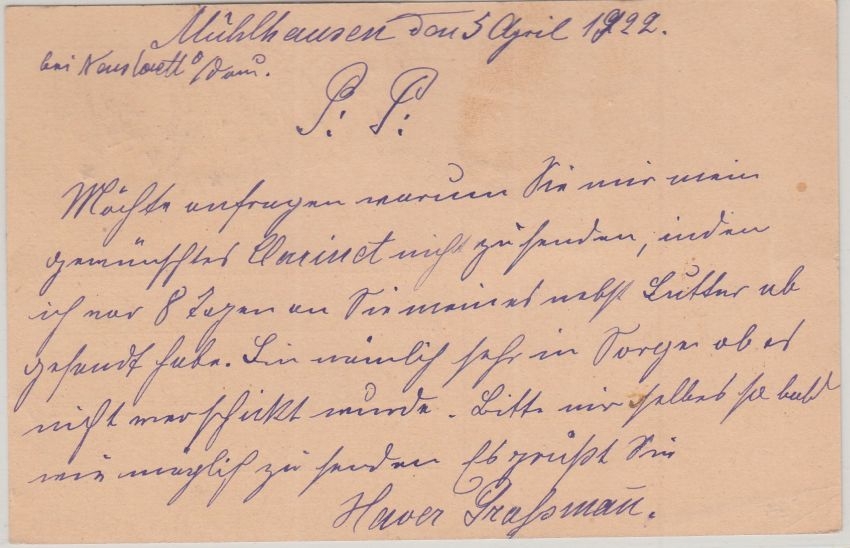 Mühlhausen den 5 April 1922.
bei Neustadt a/Donau.
P. P.
Möchte anfragen warum Sie mir mein
gewünschtes Clarinet nicht zu senden, indem
ich vor 8 Tagen an Sie meines nebst Butter ab
gesandt habe. Bin nämlich sehr in Sorge ob es
nicht verschickt wurde. Bitte mir selbes so bald
wie möglich zu senden Es grüßt Sie
Xaver Graßmann.